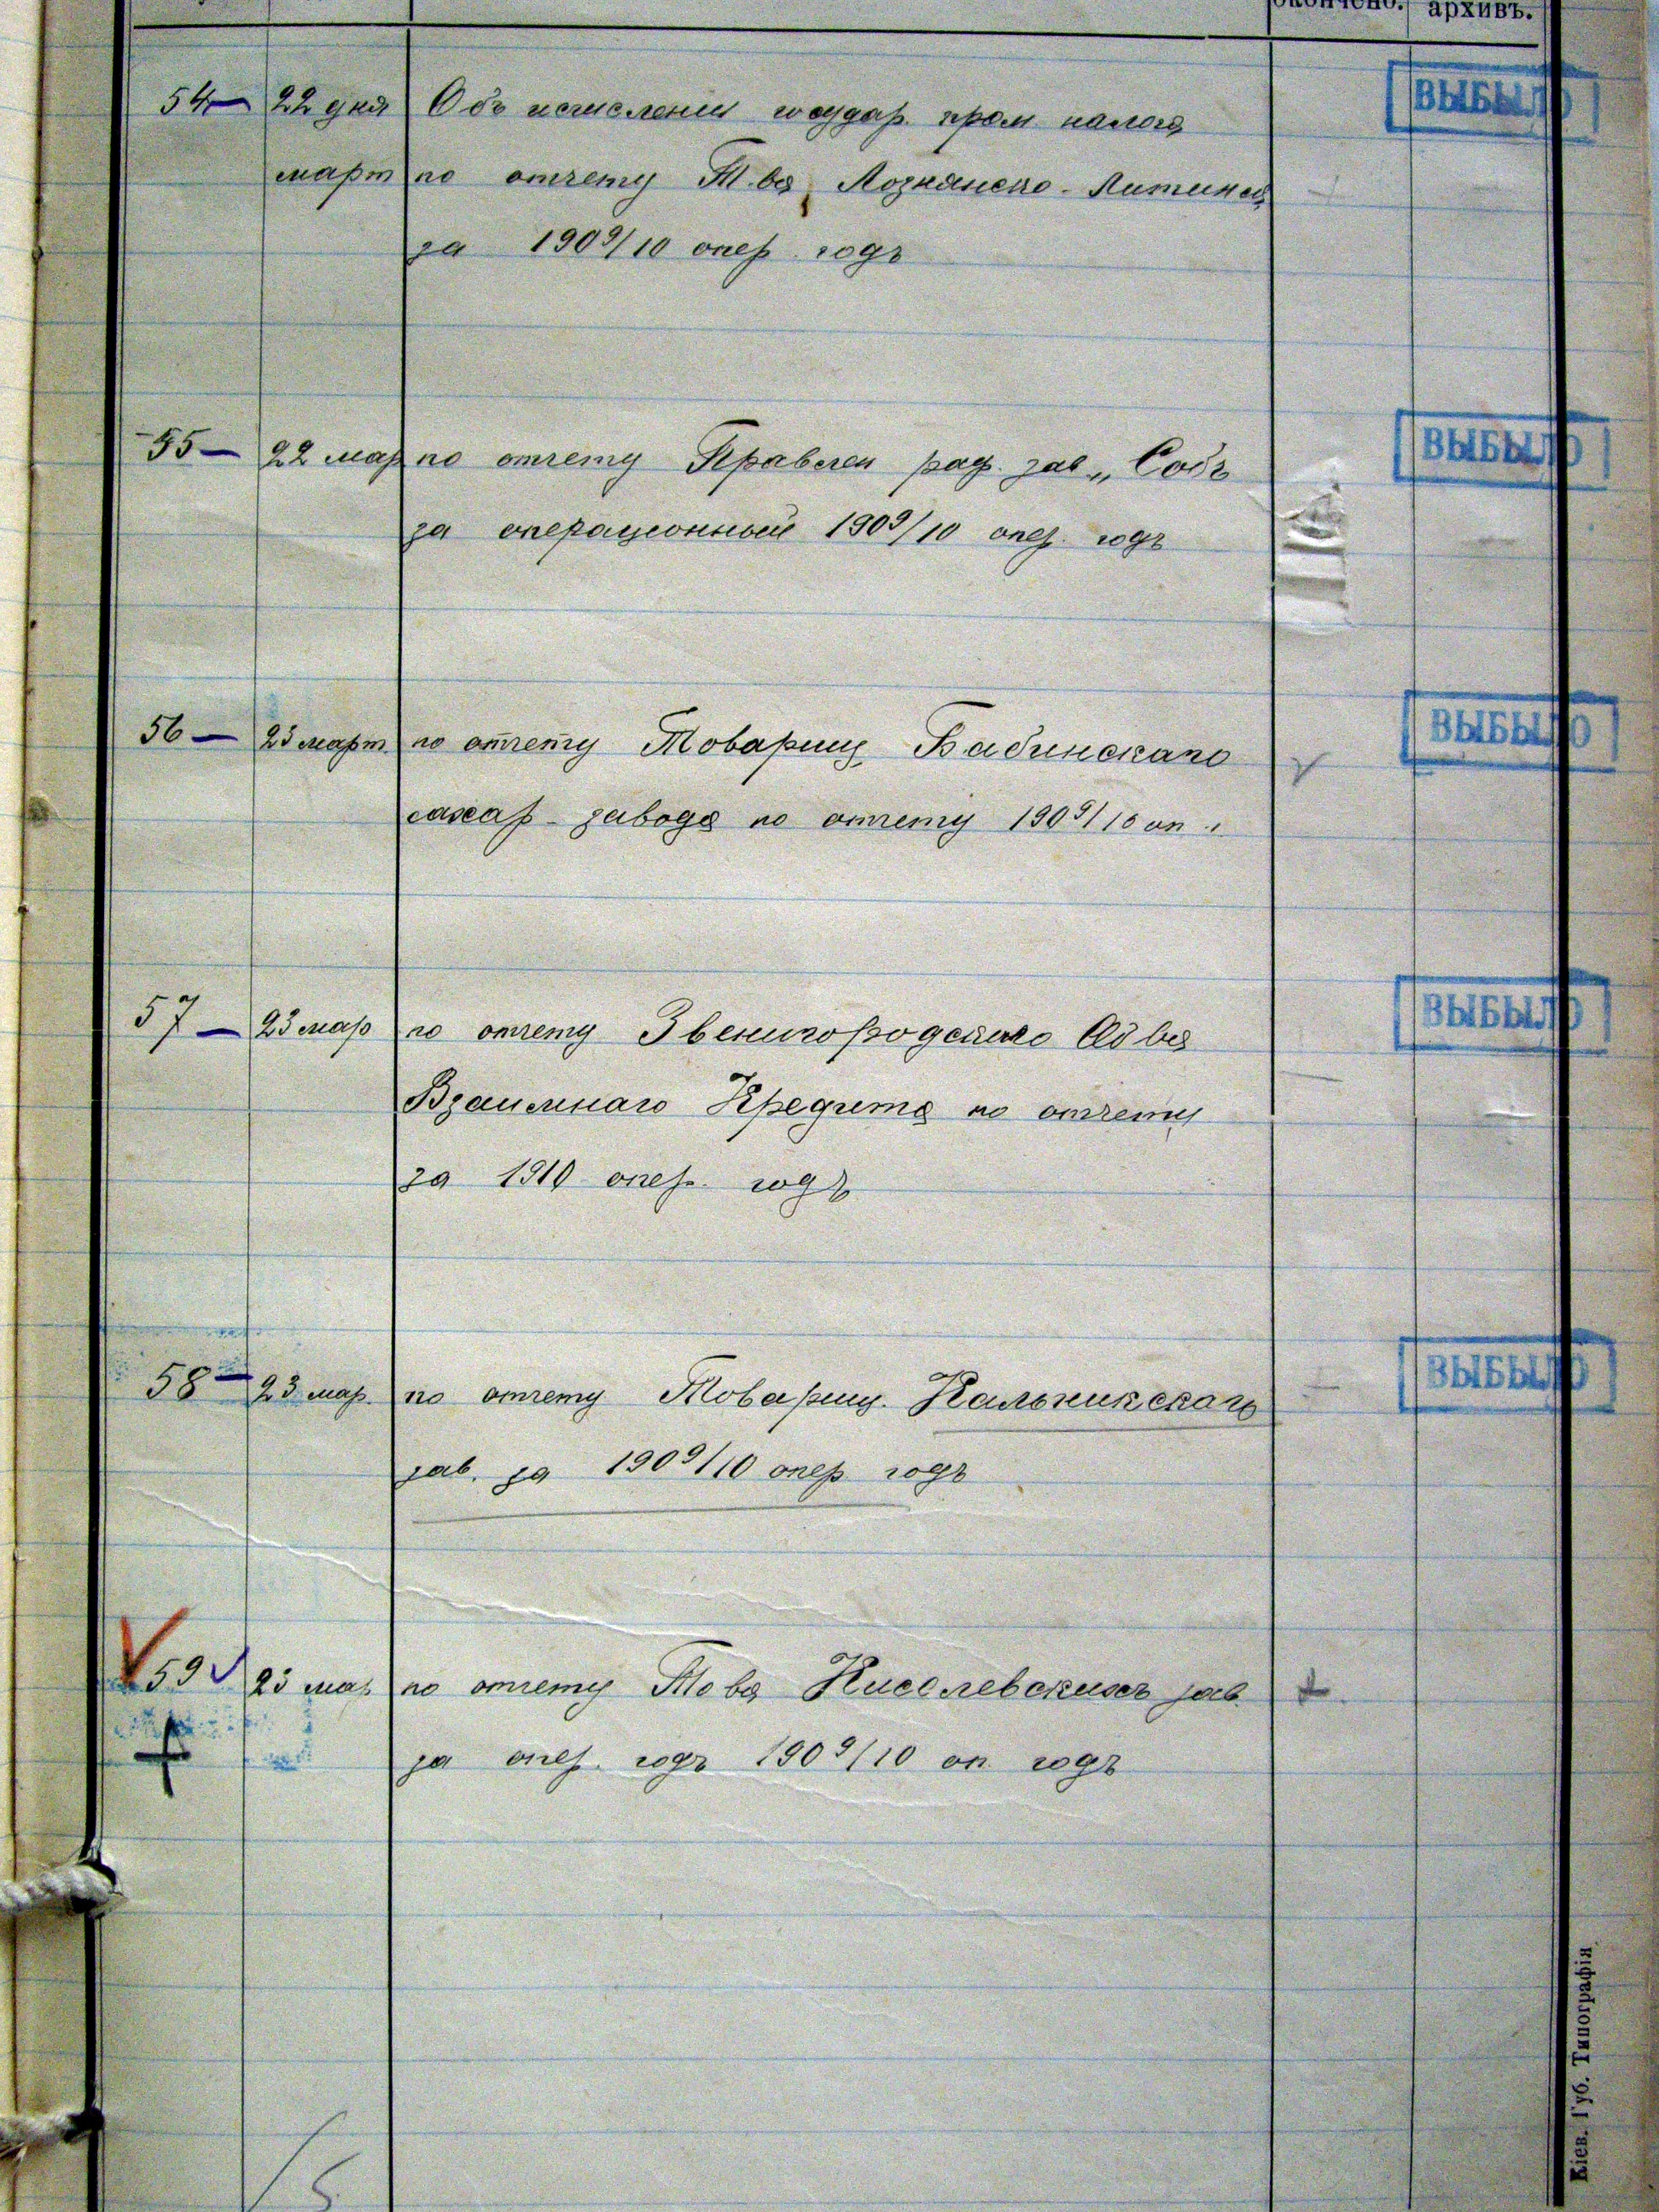 окончено. архивъ.
54 22 дня Объ исчисленіи государ. пром налога ВЫБЫЛО
март по отчету Т.ва Литинск
за 1909/10 опер. годъ
55 22 мар по отчету Правлен раф. зав „Собъ ВЫБЫЛО
за операціонный 1909/10 опер. годъ
56 23 март по отчету Товарищ. Бабинскаго ВЫБЫЛО
сахар. завода по отчету 1909/10 оп. г.
57 23 мар по отчету Звенигородскаго Об ва ВЫБЫЛО
Взаимнаго Кредита по отчету
за 1910 опер. годъ
58 23 мар. по отчету Товарищ. Кальникскаго ВЫБЫЛО
зав. за 1909/10 опер годъ
59 23 мар по отчету Това Киселевскихъ зав. +
+ за опер. годъ 1909/10 оп. годъ
Кіев. Губ. Типографія